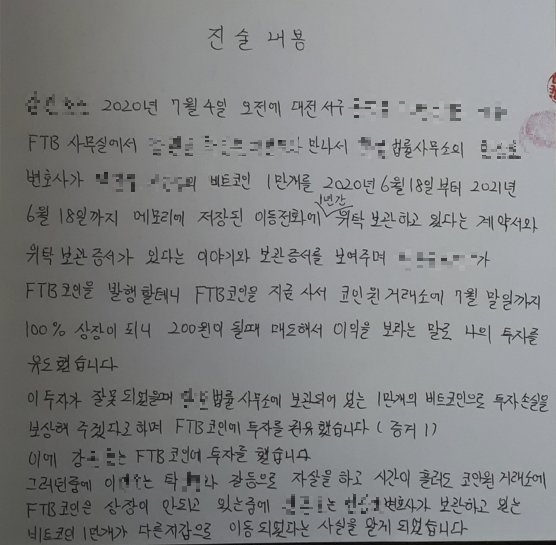 진술내용
2020년 7월 4일 오전에 대전 서구
FTB 사무실에서 만나서 법률사무소의
변호사가 의 비트코인 1만개를 2020년 6월 18일부터 2021년
1년간
6월 18일까지 메모리에 저장된 이동전화에 위탁 보관하고 있다는 계약서와
위탁 보관 증서가 있다는 이야기와 보관증서를 보여주며 가
FTB코인을 발행할테니 FTB코인을 지금 사서 코인원거래소에 7월 말일까지
100% 상장이 되니 200원이 될때 매도해서 이익을 보라는 말로 나의 투자를
유도했습니다
이 투자가 잘못되었을때 법률사무소에 보관되어 있는 1만개의 비트코인으로 투자손실을
보상해 주겠다고하며 FTB코인에 투자를 권유했습니다 (증거 1)
이에 강 는 FTB코인에 투자를 했습니다
그러던중에 이 는 탁 나 갈등으로 자살을 하고 시간이 흘러도 코인원거래소에
FTB코인은 상장이 안되고 있는중에 는 변호사가 보관하고 있는
비트코인 1만개가 다른지갑으로 이동되었다는 사실을 알게 되었습니다